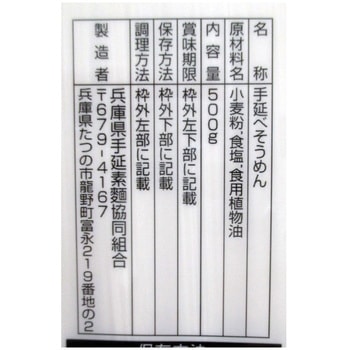 名称 手延べそうめん
原材料名 小麦粉,食塩,食用植物油
内容量 500g
賞味期限 枠外左下部に記載
保存方法 枠外下部に記載
調理方法 枠外左部に記載
製造者 兵庫県手延素麺協同組合
〒679-4167
兵庫県たつの市龍野町富永219番地の2
保存方法